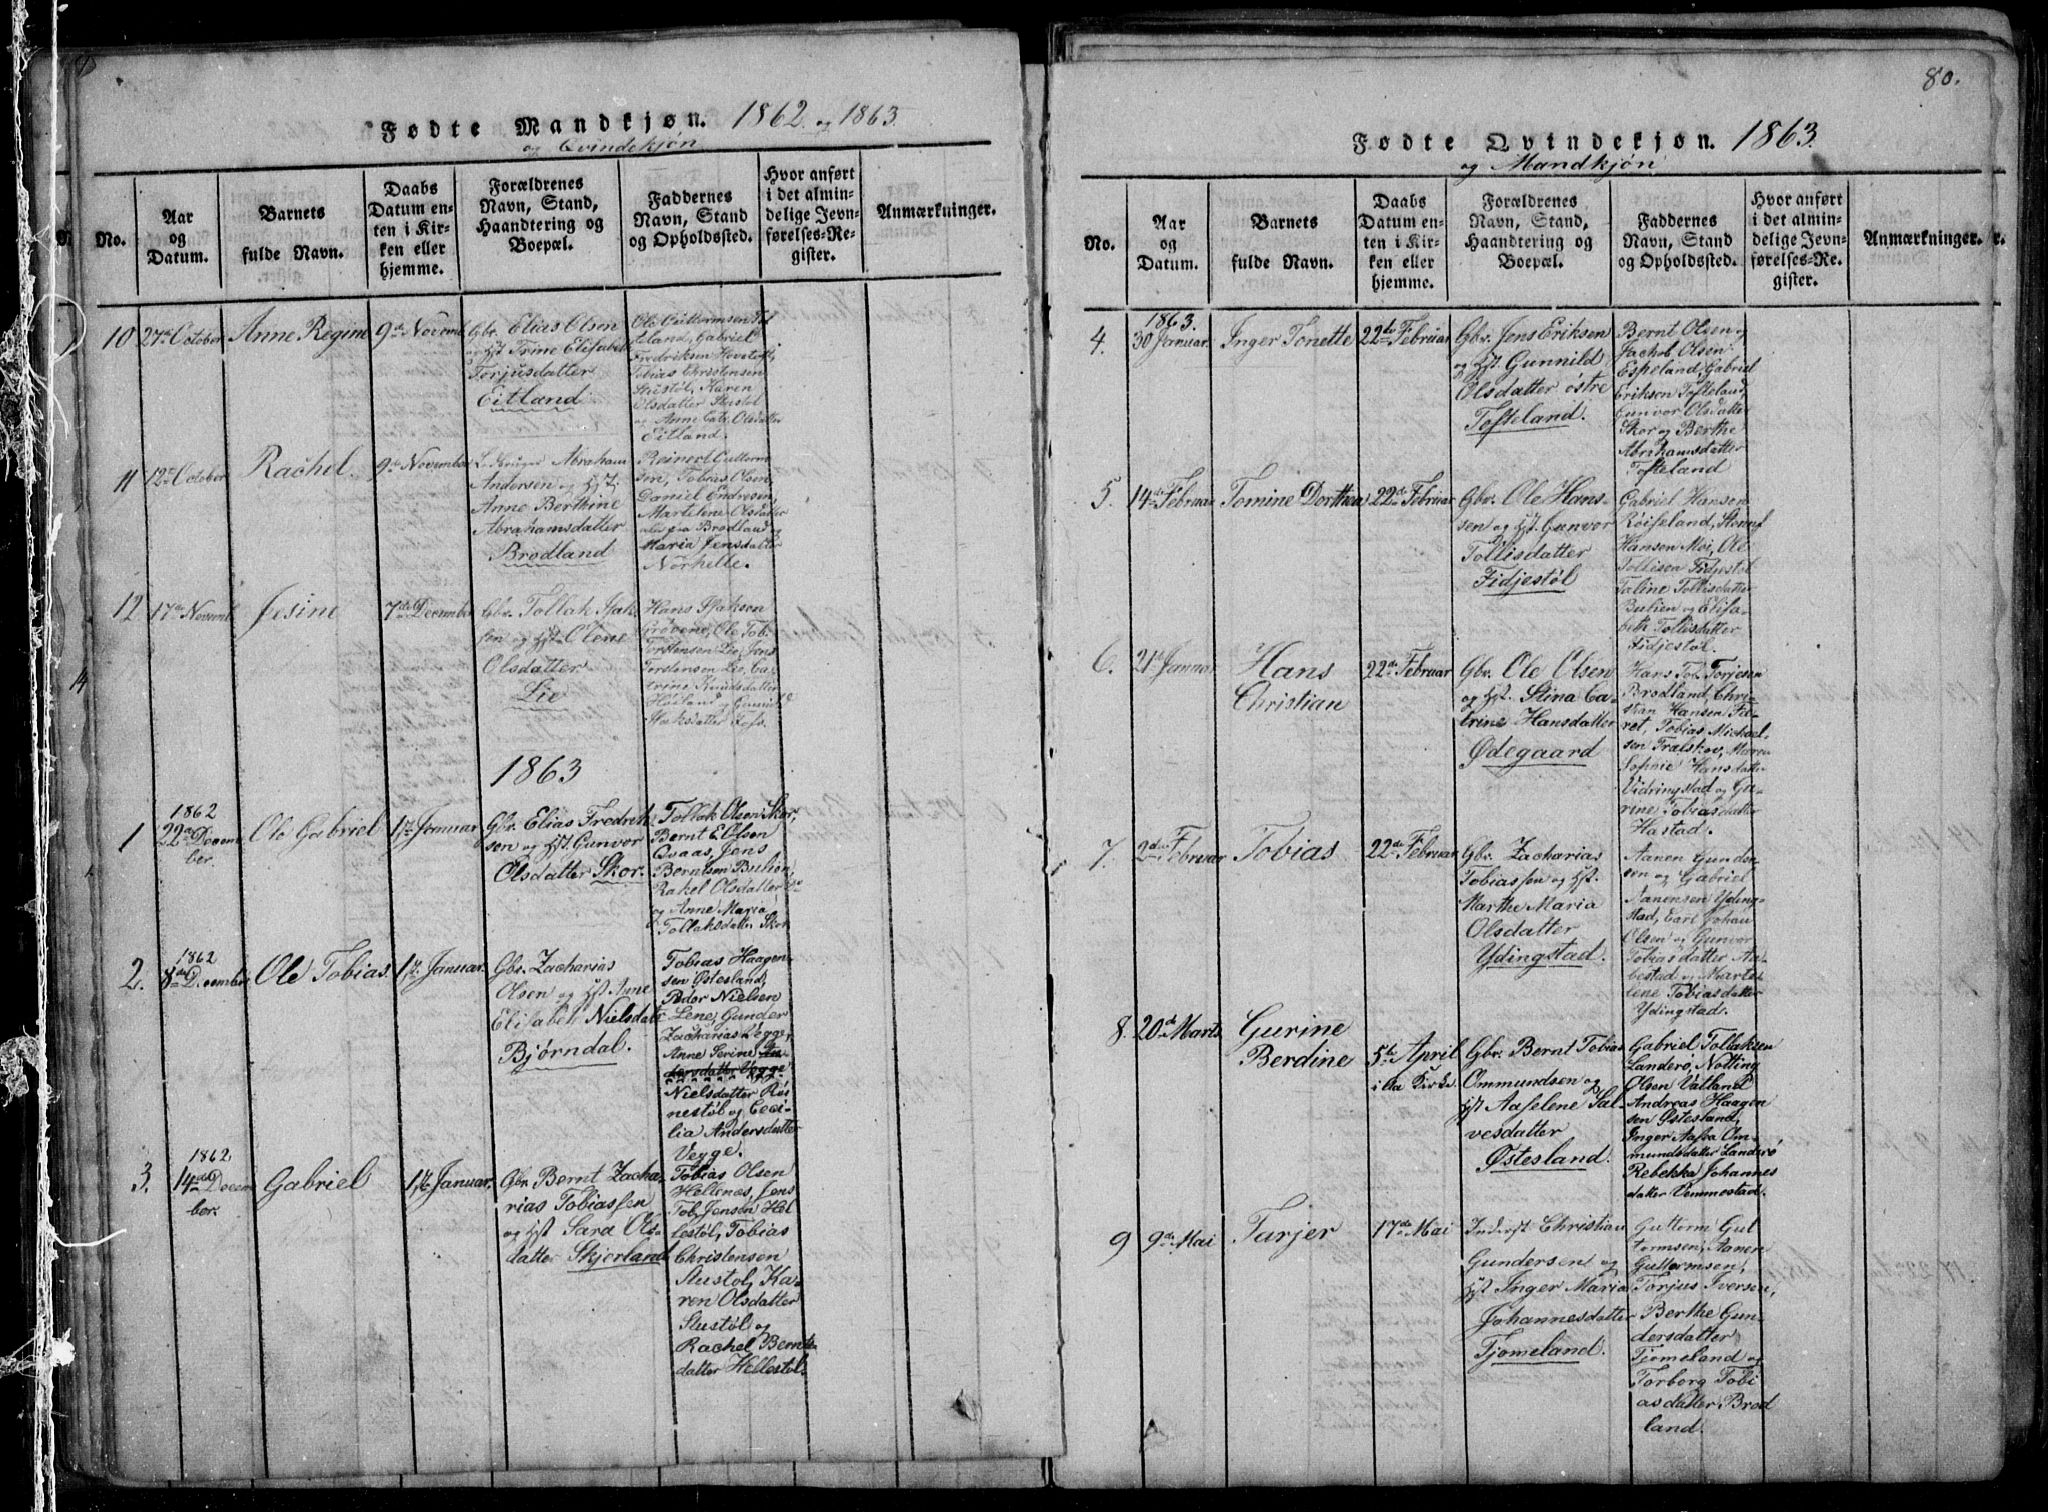 Fødte Mandkjøn. 1862 og 1863
og Qvindekjøn
No.
Aar
og
Datum.
Barnets
fulde Navn.
Daabs
Datum en-
ten i Kir-
ken eller
hjemme.
Forældrenes
Navn, Stand,
Haandtering og
Boepæl.
Faddernes
Navn, Stand
og Opholdssted.
Hvor anført
i det almin-
delige Jevn-
førelses-Re-
gister.
Anmærkninger.
10
27de October
Anne Regine
9de Novemb
Gbr. Elias Olsen
og Hst Trine Elisabet
Torjusdatter
Eitland
Ole Guttormsen
Eitland, Gabriel
Fredriksen
Tobias Christensen
Stustøl, Karen
Olsdatter Stustøl
og Anne Cat. Olsdatter
Eitland.
11
12te October
Rachel.
9de November
Abraham
Andersen og Hst.
Anne Berthine
Abrahamsdatter
Brødland
Reinert Guttorm
sen, Tobias Olsen,
Daniel Endresen,
Martilene Olsdatter
alle fra Brødland og
Maria Jensdatter
Norhelle.
12
17de Novemb
Jesine
7de December
Gbr. Tollak Isak
sen og Hst. Olene
Olsdatter
Lie
Hans Isaksen
Grøvene, Ole Tob.
Torstensen Lie, Jens
Torstensen Lie, Ca-
trine Knudsdatter
Høiland og Gunild
Isaksdatter
1863
1
1862
22de Decem
ber.
Ole Gabriel
1ste Januar
Gbr. Elias Fredrik
sen og Hst. Gunvor
Olsdatter Skor.
Tollak Olsen Skor,
Bernt E. Olsen
Qvaas, Jens
Berntsen Bulien,
Rakel Olsdatter
og Anne Maria
Tollaksdatter Skor
2.
1862
8de December
Ole Tobias.
1ste Januar.
Gbr. Zacharias
Olsen og Hst Anne
Elisabeth Nielsdatt
Bjørndal.
Tobias Haagen
sen Østesland,
Peder Nielsen
Lene, Gunder
Zacharias Vegge,
Anne Serine An-
dersdatter Vegge
Nielsdatter Røi
nestøl og Ceci-
lia Andersdatter
Vegge.
3.
1862
14de Decem
ber.
Gabriel
1ste Januar.
Gbr Bernt Zacha
rias Tobiassen
og Hst Sara Ols-
datter Skjerland
Tobias Olsen
Hellenes, Jens
Tob. Jensen Hel
lestøl, Tobias
Christensen
Stustøl, Ka-
ren Olsdatter
Stustøl og
Rachel Bernts-
datter Hellestøl.
80.
Fødte Qvindekjøn. 1863.
og Mandkjøn
No.
Aar
og
Datum.
Barnets
fulde Navn.
Daabs
Datum en-
ten i Kir-
ken eller
hjemme.
Forældrenes
Navn, Stand,
Haandtering og
Boepæl.
Faddernes
Navn, Stand
og Opholdssted.
Hvor anført
i det almin-
delige Jevn-
førelses-Re-
gister.
Anmærkninger.
4.
1863.
30 Januar.
Inger Tonette
22de Februar
Gbr. Jens Eriksen
og Hst. Gunnild
Olsdatter østre
Tofteland.
Bernt Olsen og
Jachob Olsen
Espeland, Gabriel
Eriksen Tofteland
Gunvor Olsdatter
Skor og Berthe
Abrahamsdatter
Tofteland
5.
14de Februar
Tomine Dorthea
22de Februar
Gbr. Ole Han-
sen og Hst. Gunvor
Tollisdatter
Fidjestøl
Gabriel Hansen
Røiseland,
Hansen Moi, Ole
Tollisen Fidjestøl
Taline Tollisdatter
Bulien og Elisa-
beth Tollisdatter
Fidjestøl.
6.
21de Januar
Hans
Christian
22de Februar
Gbr. Ole Olsen
og Hst. Stina Ca-
trine Hansdatter
Ødegaard
Hans Tob. Torjesen
Brødland, Chri-
stian Hansen
Tobias Michael-
sen Maren
Sophie Hansdatter
Vidringstad og Gu-
rine Tobiasdatter
Hastad.
7.
2den Februar
Tobias
22de Februar
Gbr. Zacharias
Tobiassen og Hst.
Marthe Maria
Olsdatter
Ydingstad.
Aanen Gunder
sen og Gabriel
Aanensen Yding-
stad, Carl Johan
Olsen og Gunvor
Tobiasdatter Aa-
bestad og Marte-
lene Tobiasdatter
Ydingstad.
8.
20de Marts
Gurine
Berdine
5te April
i Aa Kirke
Gbr. Bernt Tobias
Ommundsen og
Hst Aaselene Sal-
vesdatter
Østesland.
Gabriel Tollaksen
Landerø, Notting
Olsen Vatland
Andreas Haagen
sen Østesland,
Inger Aasa Om-
mundsdatter Landerø
Rebekka Johannes
datter Vemmestad.
9
9de Mai
Tarjer
17de Mai
Inderst Christian
Gundersen og
Hst Inger Maria
Johannesdatter
Tjomeland.
Guttorm Gut
tormsen, Aanen
Guttormsen,
Torjus Iversen,
Berthe Gun-
dersdatter
Tjomeland og
Torborg Tobi
asdatter Brød
land.